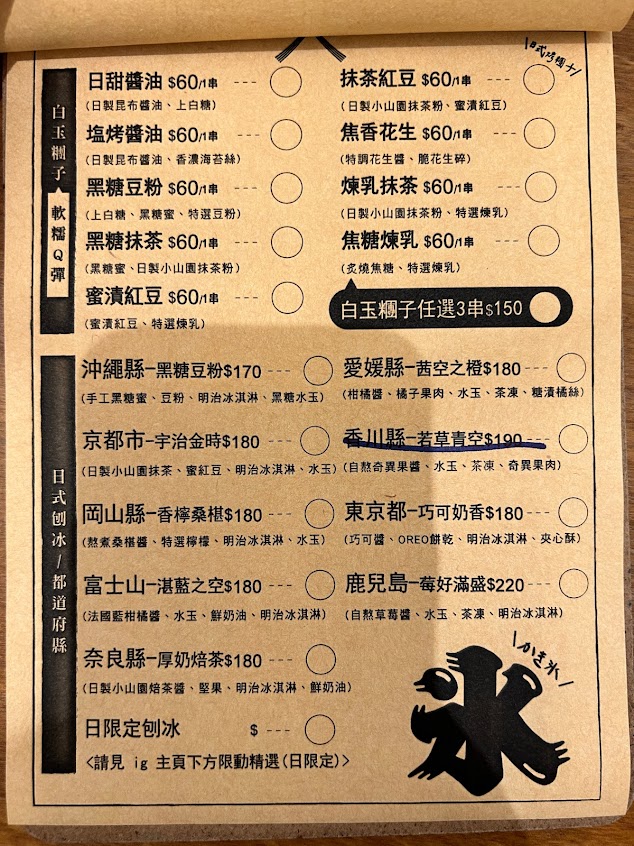 日式巧糰子
白玉糰子 軟糯Q彈
日甜醬油 $60/1串 ---
(日製昆布醬油、上白糖)
塩烤醬油 $60/1串 ---
(日製昆布醬油、香濃海苔絲)
黑糖豆粉 $60/1串 ---
(上白糖、黑糖蜜、特選豆粉)
黑糖抹茶 $60/1串 ---
(黑糖蜜、日製小山園抹茶粉)
蜜漬紅豆 $60/1串 ---
(蜜漬紅豆、特選煉乳)
抹茶紅豆 $60/1串 ---
(日製小山園抹茶粉、蜜漬紅豆)
焦香花生 $60/1串 ---
(特調花生醬、脆花生碎)
煉乳抹茶 $60/1串 ---
(日製小山園抹茶粉、特選煉乳)
焦糖煉乳 $60/1串 ---
(炙燒焦糖、特選煉乳)
白玉糰子任選3串$150
日式刨冰/都道府縣
沖繩縣-黑糖豆粉$170 ---
(手工黑糖蜜、豆粉、明治冰淇淋、黑糖水玉)
京都市-宇治金時$180 ---
(日製小山園抹茶、蜜紅豆、明治冰淇淋、水玉)
岡山縣-香檸桑椹$180 ---
(熬煮桑椹醬、特選檸檬、明治冰淇淋、水玉)
富士山-湛藍之空$180 ---
(法國藍柑橘醬、水玉、鮮奶油、明治冰淇淋)
奈良縣-厚奶焙茶$180 ---
(日製小山園焙茶醬、堅果、明治冰淇淋、鮮奶油)
日限定刨冰 $ ---
<請見 ig 主頁下方限動精選(日限定)>
愛媛縣-茜空之橙$180 ---
(柑橘醬、橘子果肉、水玉、茶凍、糖漬橘絲)
香川縣-若草青空$190 ---
(自熬奇異果醬、水玉、茶凍、奇異果肉)
東京都-巧可奶香$180 ---
(巧可醬、OREO餅乾、明治冰淇淋、夾心酥)
鹿兒島-莓好滿盛$220 ---
(自熬草莓醬、水玉、茶凍、明治冰淇淋)
かき氷
氷